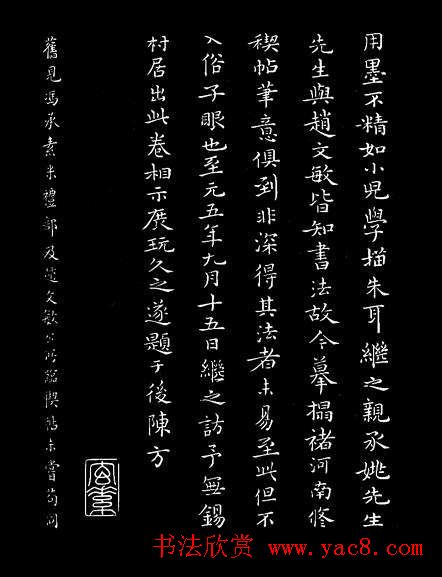 用墨不精如小兒學描朱耳繼之親承姚先生
先生與趙文敏皆知書法故令摹搨褚河南脩
禊帖筆意俱到非深得其法者未易至此但不
入俗子眼也至元五年九月十五日繼之訪予無錫
村居出此卷相示展玩久之遂題于後陳方
舊見馮承素米禮部及趙文敏公所臨禊帖未嘗苟同
书法欣赏 www.yac8.com